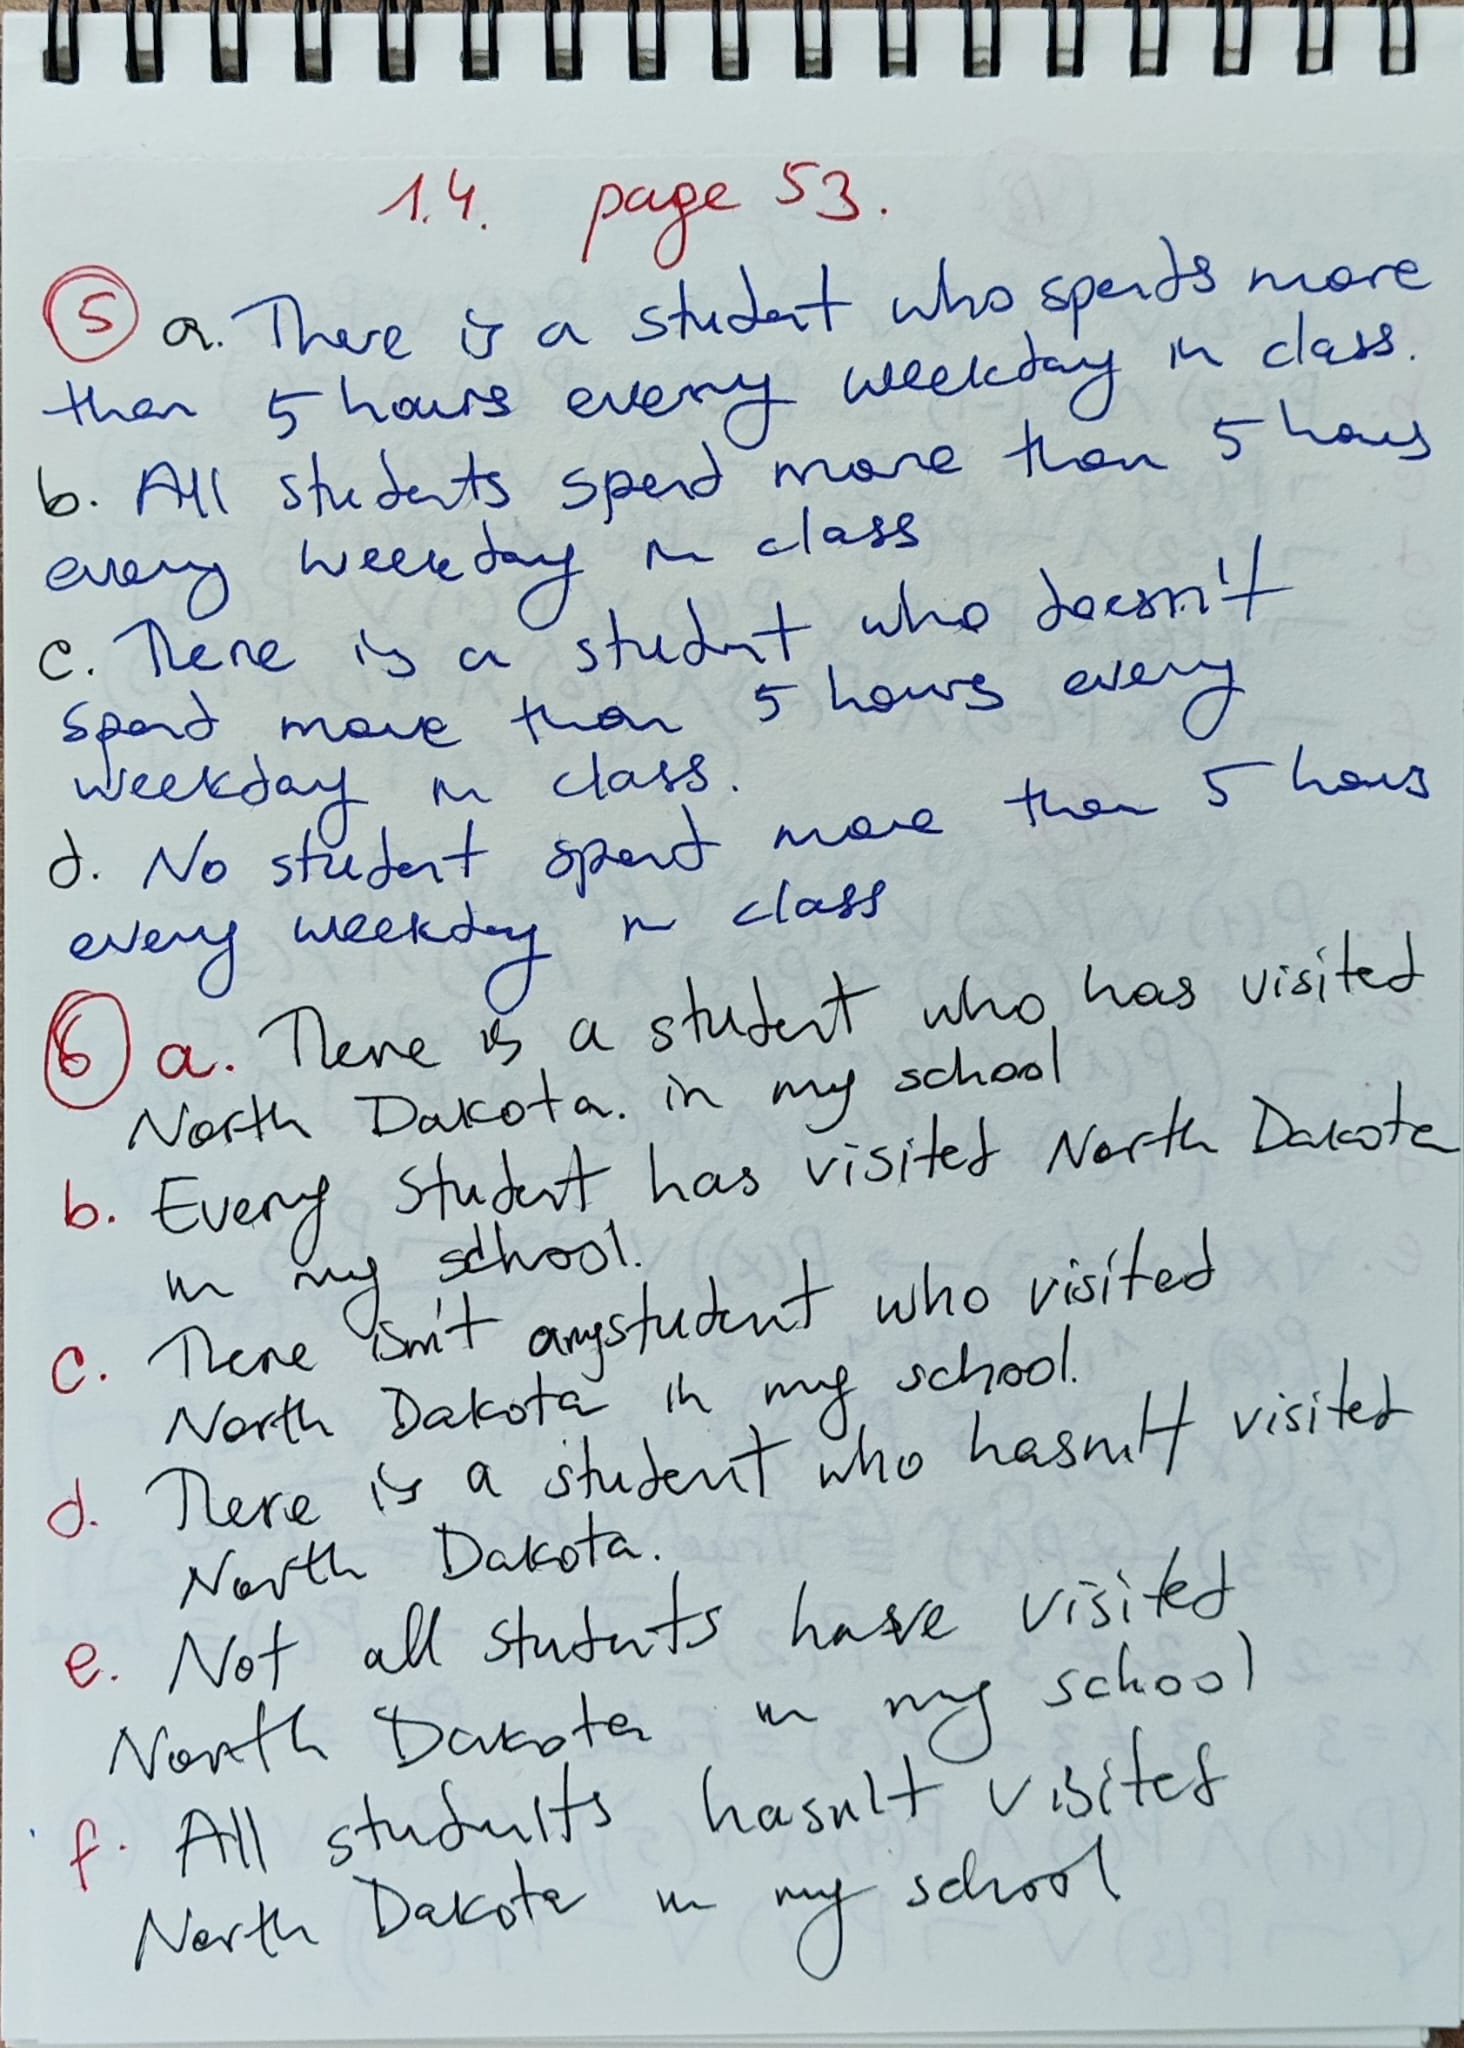 1.4. page 53.
5 a. There is a student who spends more
than 5 hours every weekday in class.
b. All students spend more than 5 hours
every weekday in class
c. There is a student who doesn't
spend more than 5 hours every
weekday in class.
d. No student spend more than 5 hours
every weekday in class
6 a. There is a student who has visited
North Dakota. in my school
b. Every student has visited North Dakota
in my school.
c. There isn't any student who visited
North Dakota in my school.
d. There is a student who hasn't visited
North Dakota.
e. Not all students have visited
North Dakota in my school
f. All students hasn't visited
North Dakota in my school